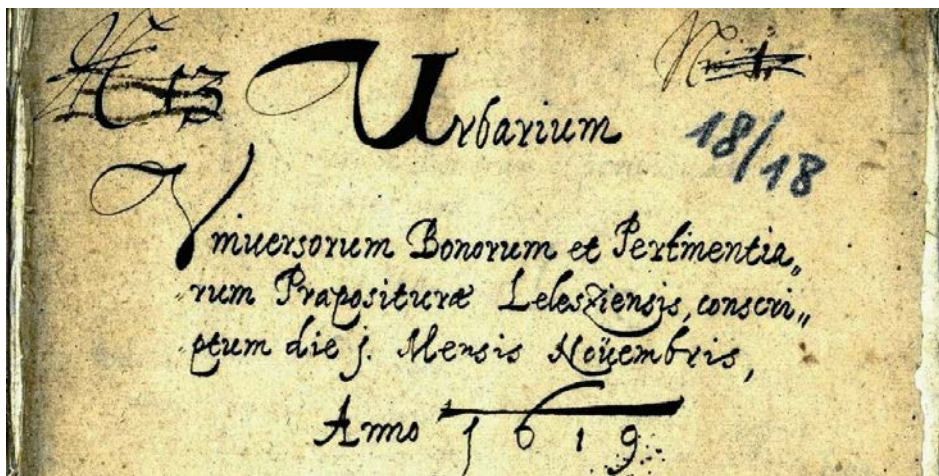 N 13
Urbarium
N 1.
18/18
Vniuersorum Bonorum et Pertinentia„
„rum Præposituræ Lelesziensis, conscri„
„ptum die j. Mensis Noüembris,
Anno 1619.